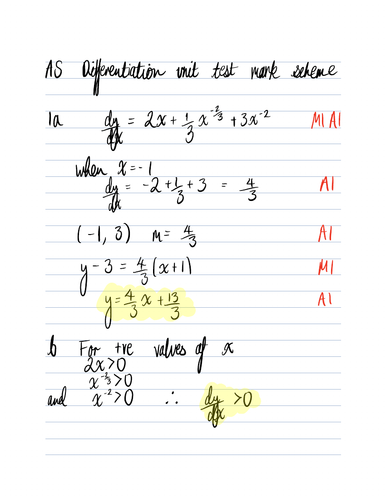 AS Differentiation unit test mark scheme
1a dy/dx = 2x + 1/3 x^(-2/3) + 3x^(-2) M1 A1
when x = -1
dy/dx = -2 + 1/3 + 3 = 4/3 A1
(-1, 3) m = 4/3 A1
y - 3 = 4/3 (x+1) M1
y = 4/3 x + 13/3 A1
b For +ve values of x
2x > 0
x^(-2/3) > 0
and x^(-2) > 0 ∴ dy/dx > 0